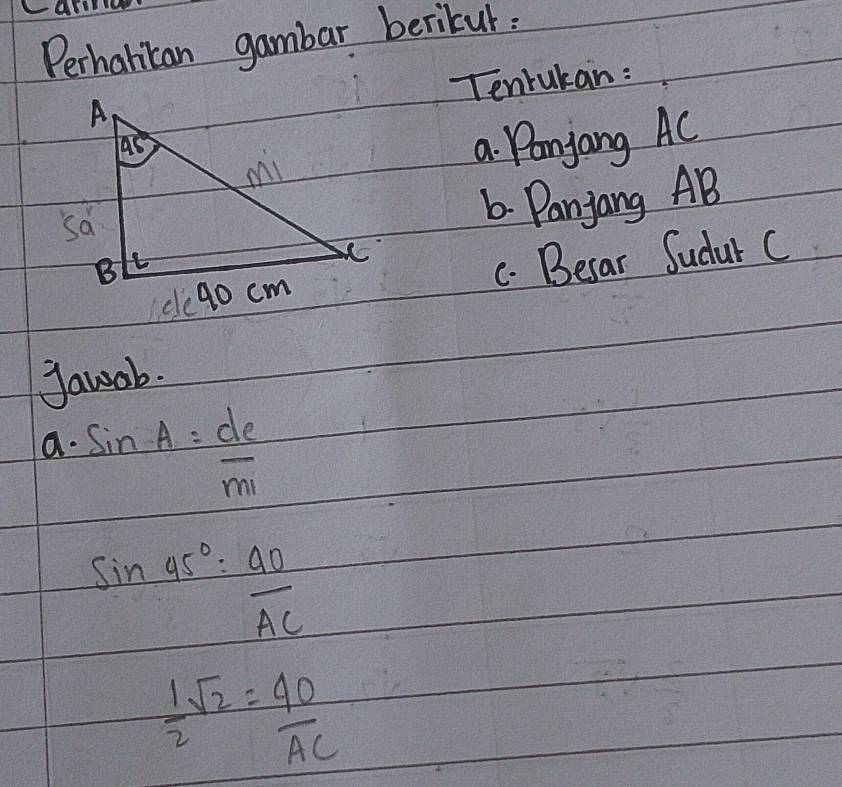 Perhatikan gambar berikut:
Tentukan:
A
45
mi
sa
B
C
de 40 cm
a. Panjang AC
b. Panjang AB
c. Besar Sudut C
Jawab.
a. Sin A = de
mi
Sin 45° = 40
AC
1/2 √2 = 40
AC